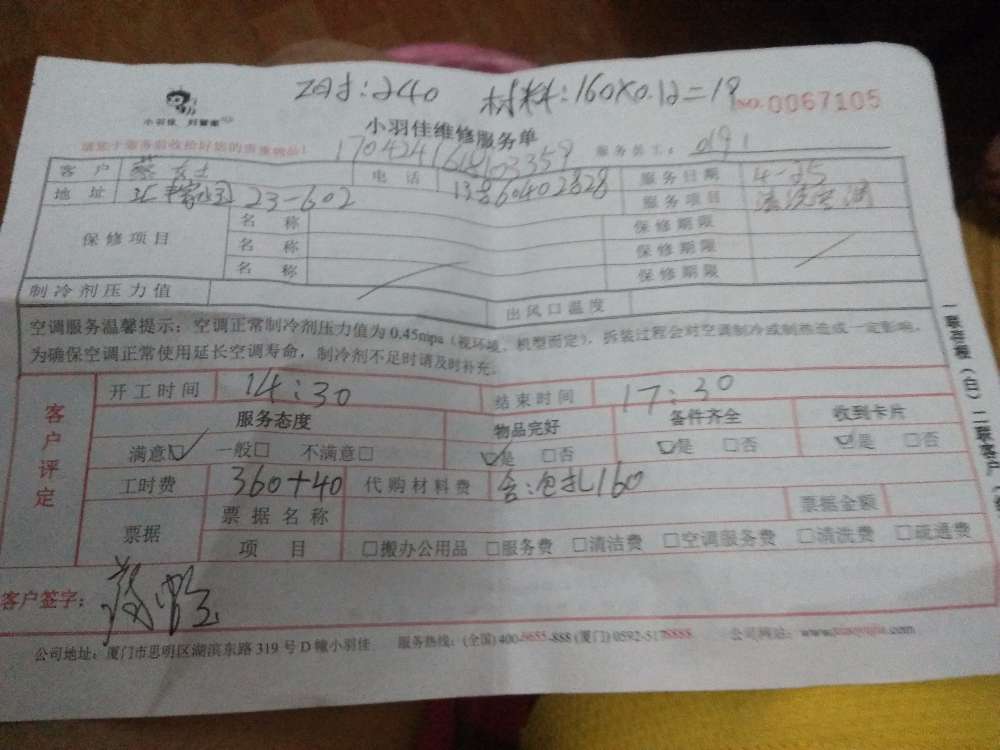 工时:240 材料:160×0.12=19
小羽佳 刘管家
NO.0067105
小羽佳维修服务单
服务员工: 0191
客户 蔡女士 电话 服务日期 4-25
地址 23-602 13860402828 服务项目
保修项目 名称 保修期限
名称 保修期限
名称 保修期限
制冷剂压力值 出风口温度
空调服务温馨提示:空调正常制冷剂压力值为0.45mpa(视环境、机型而定),拆装过程会对空调制冷或制热造成一定影响,
为确保空调正常使用延长空调寿命,制冷剂不足时请及时补充。
客户评定
开工时间 14:30 结束时间 17:30
服务态度 物品完好 备件齐全 收到卡片
满意☑ 一般□ 不满意□ ☑是 □否 ☑是 □否 ☑是 □否
工时费 360+40 代购材料费 含:包扎160
票据 票据名称 票据金额
项目 □搬办公用品 □服务费 □清洁费 □空调服务费 □清洗费 □疏通费
客户签字:
公司地址:厦门市思明区湖滨东路319号D幢小羽佳 服务热线:(全国)400-8655-888(厦门)0592-5178888 公司网站:www.xiaoyujia.com
一联存根(白)二联客户